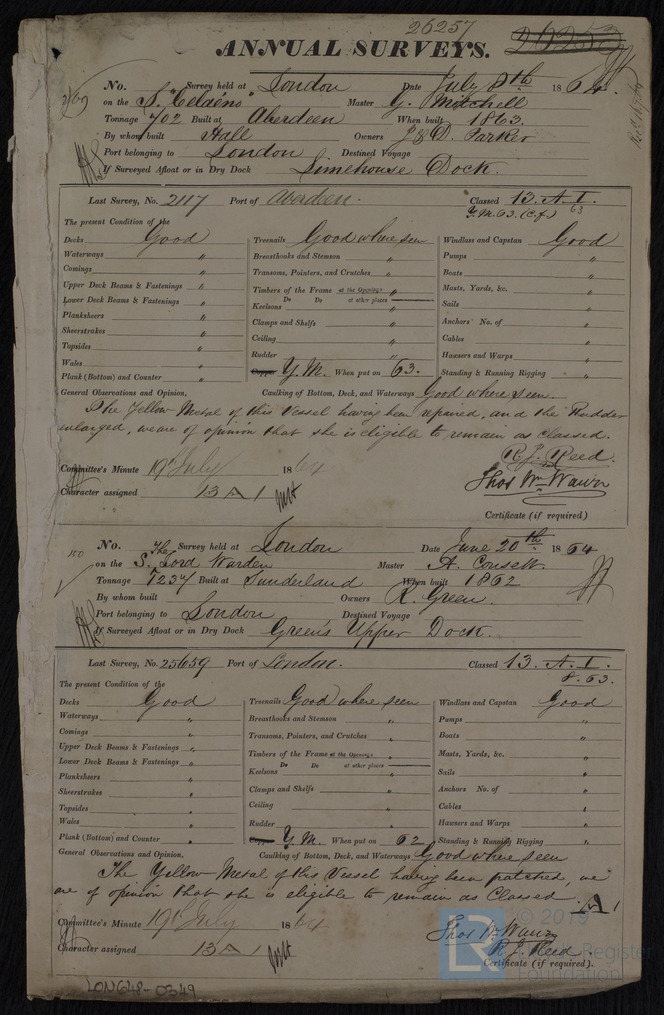 26257 26253
ANNUAL SURVEYS.
No. Survey held at London Date July 8th 1864.
on the S. Celæno Master G. Mitchell
Tonnage 702 Built at Aberdeen When built 1863.
By whom built Hall Owners J & D. Parker
Port belonging to London Destined Voyage
If Surveyed Afloat or in Dry Dock Limehouse Dock.
Last Survey, No. 2117 Port of Aberdeen. Classed 13. A. 1.
63
Y.M. 63. (c.f.)
The present Condition of the
Decks Good Treenails Good where seen Windlass and Capstan Good
Waterways " Breasthooks and Stemson " Pumps "
Comings " Transoms, Pointers, and Crutches " Boats "
Upper Deck Beams & Fastenings " Timbers of the Frame at the Openings " Masts, Yards, &c. "
Do Do at other places
Lower Deck Beams & Fastenings " Keelsons " Sails "
Planksheers " Clamps and Shelfs " Anchors No. of "
Sheerstrakes " Ceiling " Cables "
Topsides " Rudder " Hawsers and Warps "
Wales " Copper Y.M. When put on 63. Standing & Running Rigging "
Plank (Bottom) and Counter "
General Observations and Opinion, Caulking of Bottom, Deck, and Waterways Good where seen.
The Yellow Metal of this Vessel having been repaired, and the Rudder
enlarged, we are of opinion that she is eligible to remain as classed.
R. J. Reed.
Committee's Minute 19th July 1864
Thos Wm Wawn
Character assigned 13 A 1
Certificate (if required)
No. The Survey held at London Date June 20th 1864
on the S. Lord Warden Master A. Consett.
Tonnage 1237 Built at Sunderland When built 1862
By whom built Owners R. Green.
Port belonging to London Destined Voyage
If Surveyed Afloat or in Dry Dock Green's Upper Dock.
Last Survey, No. 25659 Port of London. Classed 13. A. 1.
8.63.
The present Condition of the
Decks Good Treenails Good where seen Windlass and Capstan Good
Waterways " Breasthooks and Stemson " Pumps "
Comings " Transoms, Pointers, and Crutches " Boats "
Upper Deck Beams & Fastenings " Timbers of the Frame at the Openings " Masts, Yards, &c. "
Do Do at other places
Lower Deck Beams & Fastenings " Keelsons " Sails "
Planksheers " Clamps and Shelfs " Anchors No. of "
Sheerstrakes " Ceiling " Cables "
Topsides " Rudder " Hawsers and Warps "
Wales " Y.M. When put on 62 Standing & Running Rigging "
Plank (Bottom) and Counter "
General Observations and Opinion, Caulking of Bottom, Deck, and Waterways Good where seen
The Yellow Metal of this Vessel having been patched, we
are of opinion that she is eligible to remain as Classed. A 1
Committee's Minute 19th July 1864
Thos W Wawn
R. J. Reed.
Character assigned 13 A 1
Certificate (if required).
LR © 2019 Lloyd's Register Foundation
LON648-0349